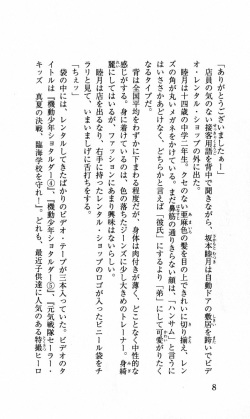 「ありがとうございましたぁー」
店員の気のない接客用語を背中で聞きながら、坂本睦月は自動ドアの敷居を跨いでビデ
オ・レンタル・ショップの外に出た。
睦月は十四歳の中学二年生。クセのない亜麻色の髪を目の上できれいに切り揃え、レン
ズの角が丸いメガネをかけている。まだ鼻筋の通りきらない顔は、「ハンサム」と言うに
はいささかあどけなく、どちらかと言えば「彼氏」にするより「弟」にして可愛がりたく
なるタイプだ。
背は全国平均をわずかに下まわる程度だが、身体は肉付きが薄く、どことなく中性的な
感じがする。身に着けているのは、色の落ちたジーンズに少し大きめのトレーナー。身綺
麗にしているが、ファッションにあまり興味はないらしい。
睦月は店を出るなり、右手に持ったレンタル・ショップのロゴが入ったビニール袋をチ
ラリと見て、いまいましげに舌打ちをする。
「ちぇッ」
袋の中には、レンタルしてきたばかりのビデオ・テープが三本入っていた。ビデオのタ
イトルは『機動少年ショタルダー④』、『機動少年ショタルダー⑤』、『元気戦隊セーラー・
キッズ 真夏の決戦、臨海学校を守れー』。どれも、最近子供達に人気のある特撮ヒーロ
8